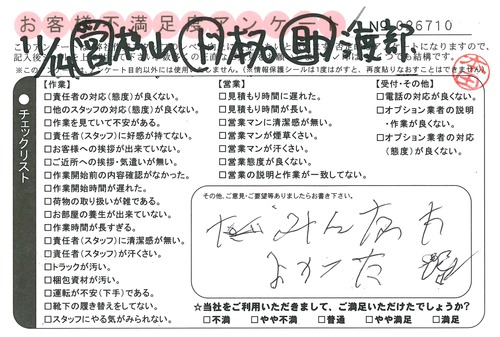 お客様不満足度アンケート
LNo.036710
11/14 営 松山 ド 本石 助 海部
※このアンケート目的以外には使用いたしません。（※情報保護シールは1度はがすと、再度貼りなおすことはできません。）
チェックリスト
【作業】
□責任者の対応（態度）が良くない。
□他のスタッフの対応（態度）が良くない。
□作業を見ていて不安がある。
□責任者（スタッフ）に好感が持てない。
□お客様への挨拶が出来ていない。
□ご近所への挨拶・気遣いが無い。
□作業開始前の内容確認がなかった。
□作業開始時間が遅れた。
□荷物の取り扱いが雑である。
□お部屋の養生が出来ていない。
□作業時間が長すぎる。
□責任者（スタッフ）に清潔感が無い。
□責任者（スタッフ）が汗くさい。
□トラックが汚い。
□梱包資材が汚い。
□運転が不安（下手）である。
□靴下の履き替えをしてない。
□スタッフにやる気がみられない。
【営業】
□見積もり時間に遅れた。
□見積もり時間が長い。
□営業マンに清潔感が無い。
□営業マンが煙草くさい。
□営業マンが汗くさい。
□営業態度が良くない。
□営業の説明と作業が一致してない。
【受付・その他】
□電話の対応が良くない。
□オプション業者の説明
・作業が良くない。
□オプション業者の対応
（態度）が良くない。
その他、ご意見・ご要望等ありましたらお書き下さい。
みんなも
よかった
☆当社をご利用いただきまして、ご満足いただけたでしょうか？
□不満 □やや不満 □普通 □やや満足 □満足